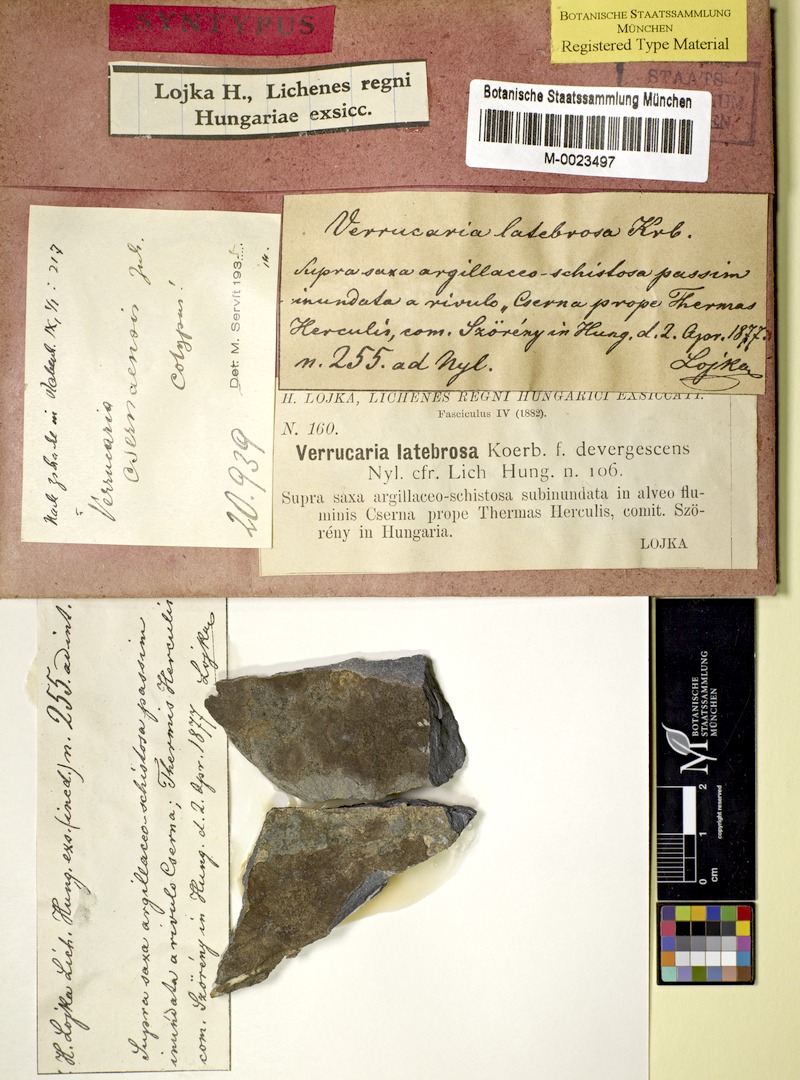 SYNTYPUS
BOTANISCHE STAATSSAMMLUNG
MÜNCHEN
Registered Type Material
STAATS
Lojka H., Lichenes regni
Hungariae exsicc.
Botanische Staatssammlung München
M-0023497
Verrucaria latebrosa Krb.
Supra saxa argillaceo-schistosa passim
inundata a rivulo „Cserna prope Thermas
Herculis, com. Szörény in Hung. d. 2. Apr. 1877.
n. 255. ad Nyl. Lojka
H. LOJKA, LICHENES REGNI HUNGARICI EXSICCATI.
Fasciculus IV (1882).
N. 160.
Verrucaria latebrosa Koerb. f. devergescens
Nyl. cfr. Lich Hung. n. 106.
Supra saxa argillaceo-schistosa subinundata in alveo flu-
minis Cserna prope Thermas Herculis, comit. Szö-
rény in Hungaria.
LOJKA
in Rabenh. IX, 1/1: 217
Verrucaria
csernaensis Zsch.
cotypus!
Det. M. Servít 193
20.939
H. Lojka Lich. Hung. exs. (ined.) n. 255. ad int.
Supra saxa argillaceo-schistosa passim
inundata a rivulo Cserna; Thermis Herculis
com. Szörény in Hung. d. 2. Apr. 1877 Lojka
BOTANISCHE
STAATSSAMMLUNG
MÜNCHEN
0 1 2
cm
copyright reserved